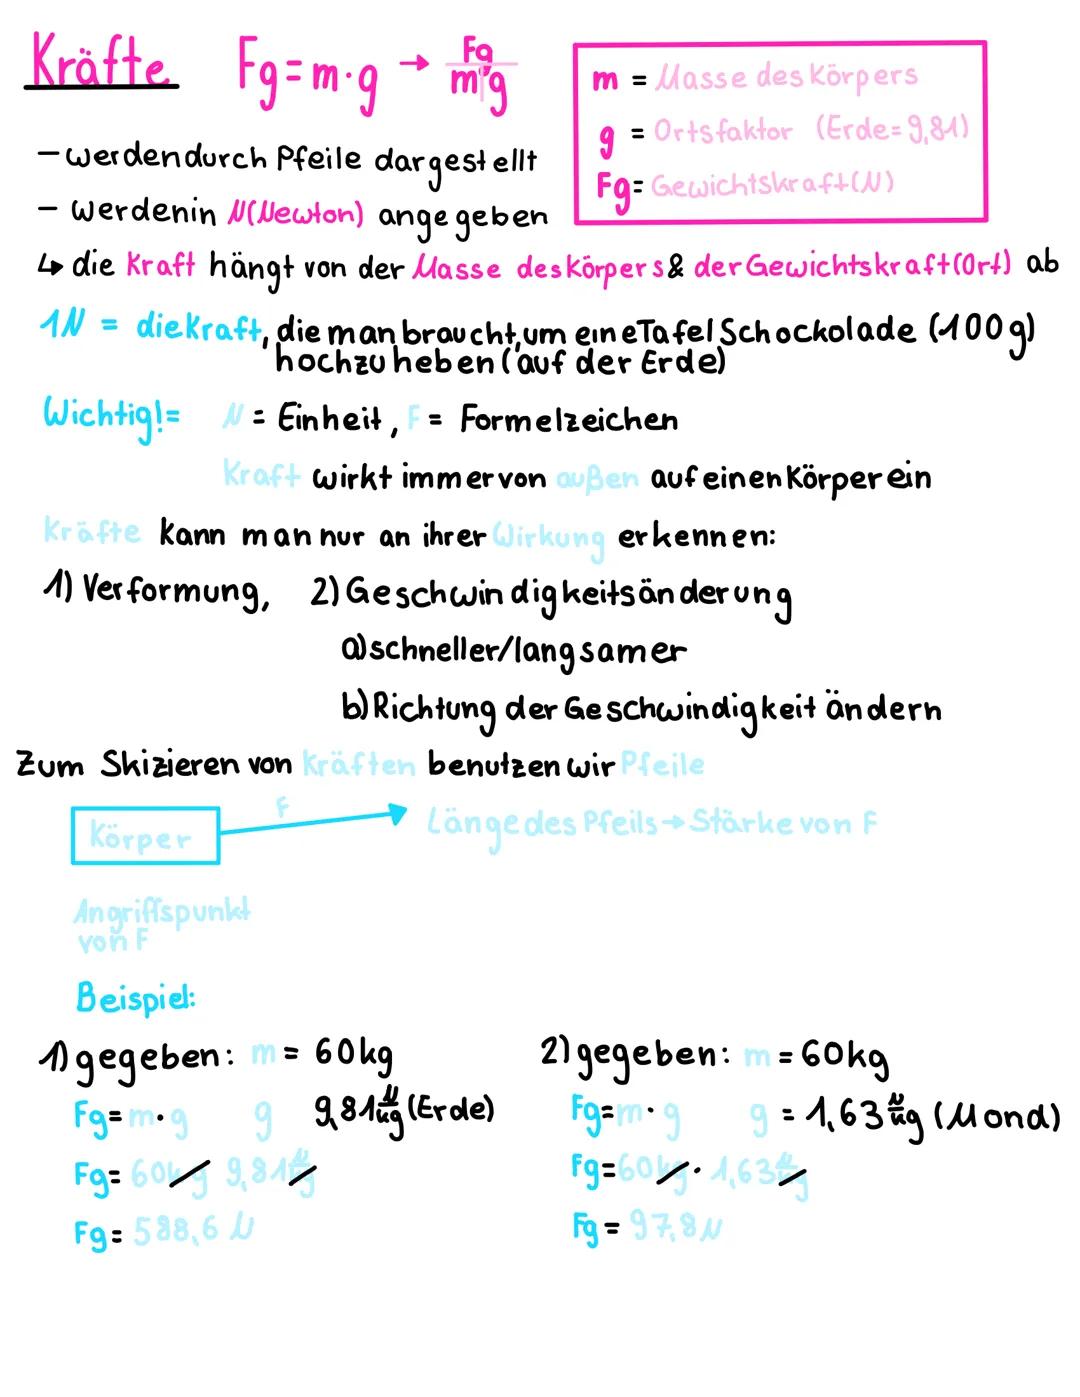 Kräfte Fg = m·g → Fg / m·g
m = Masse des Körpers
g = Ortsfaktor (Erde= 9,81)
Fg= Gewichtskraft(N)
– werden durch Pfeile dargestellt
– werden in N(Newton) angegeben
↳ die Kraft hängt von der Masse des Körpers & der Gewichtskraft(Ort) ab
1N = die Kraft, die man braucht, um eine Tafel Schockolade (100g)
hochzuheben (auf der Erde)
Wichtig!= N = Einheit, F = Formelzeichen
Kraft wirkt immer von außen auf einen Körper ein
Kräfte kann man nur an ihrer Wirkung erkennen:
1) Verformung, 2) Geschwindigkeitsänderung
a) schneller/langsamer
b) Richtung der Geschwindigkeit ändern
Zum Skizieren von Kräften benutzen wir Pfeile
Körper F Länge des Pfeils → Stärke von F
Angriffspunkt
von F
Beispiel:
1) gegeben: m = 60kg
Fg= m·g g 9,81 N/kg (Erde)
Fg= 60kg 9,81 N/kg
Fg= 588,6 N
2) gegeben: m = 60kg
Fg=m·g g = 1,63 N/kg (Mond)
Fg=60kg · 1,63 N/kg
Fg = 97,8N